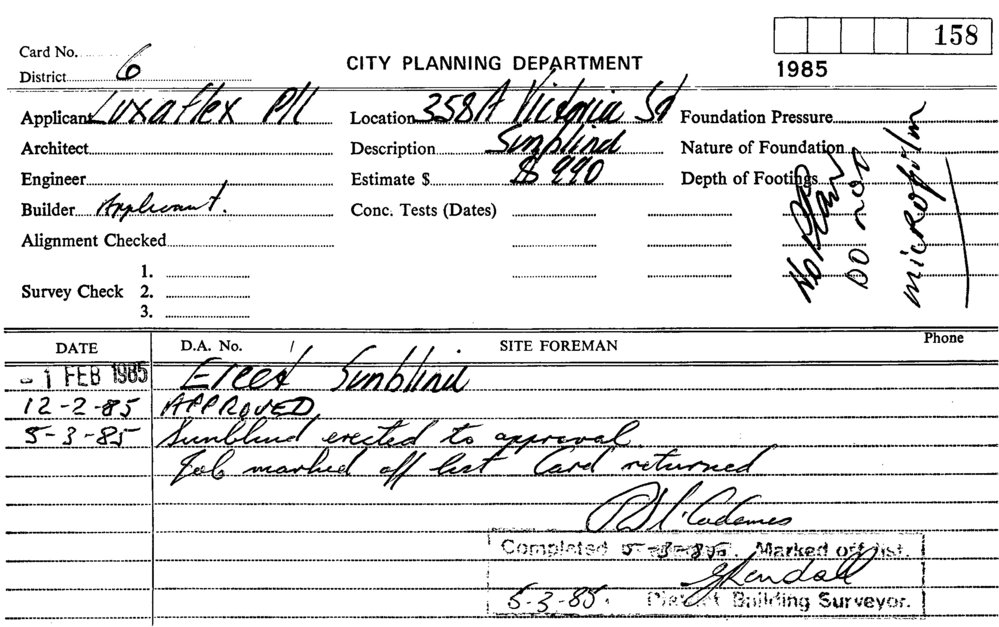 158
Card No.
CITY PLANNING DEPARTMENT
1985
District 6
Applicant Luxaflex P/L Location 358A Victoria Sd Foundation Pressure
Architect Description Sunblind Nature of Foundation
Engineer Estimate $ $ 990 Depth of Footings
Builder Applicant. Conc. Tests (Dates)
Alignment Checked
1.
Survey Check 2.
3.
No Plan
DO NOT
microfilm
DATE D.A. No. / SITE FOREMAN Phone
- 1 FEB 1985 Erect Sunblind
12-2-85 APPROVED.
5-3-85 Sunblind erected to approval
Job marked off list Card returned
Completed 5-3-85. Marked off list.
GKendall
5-3-85. District Building Surveyor.